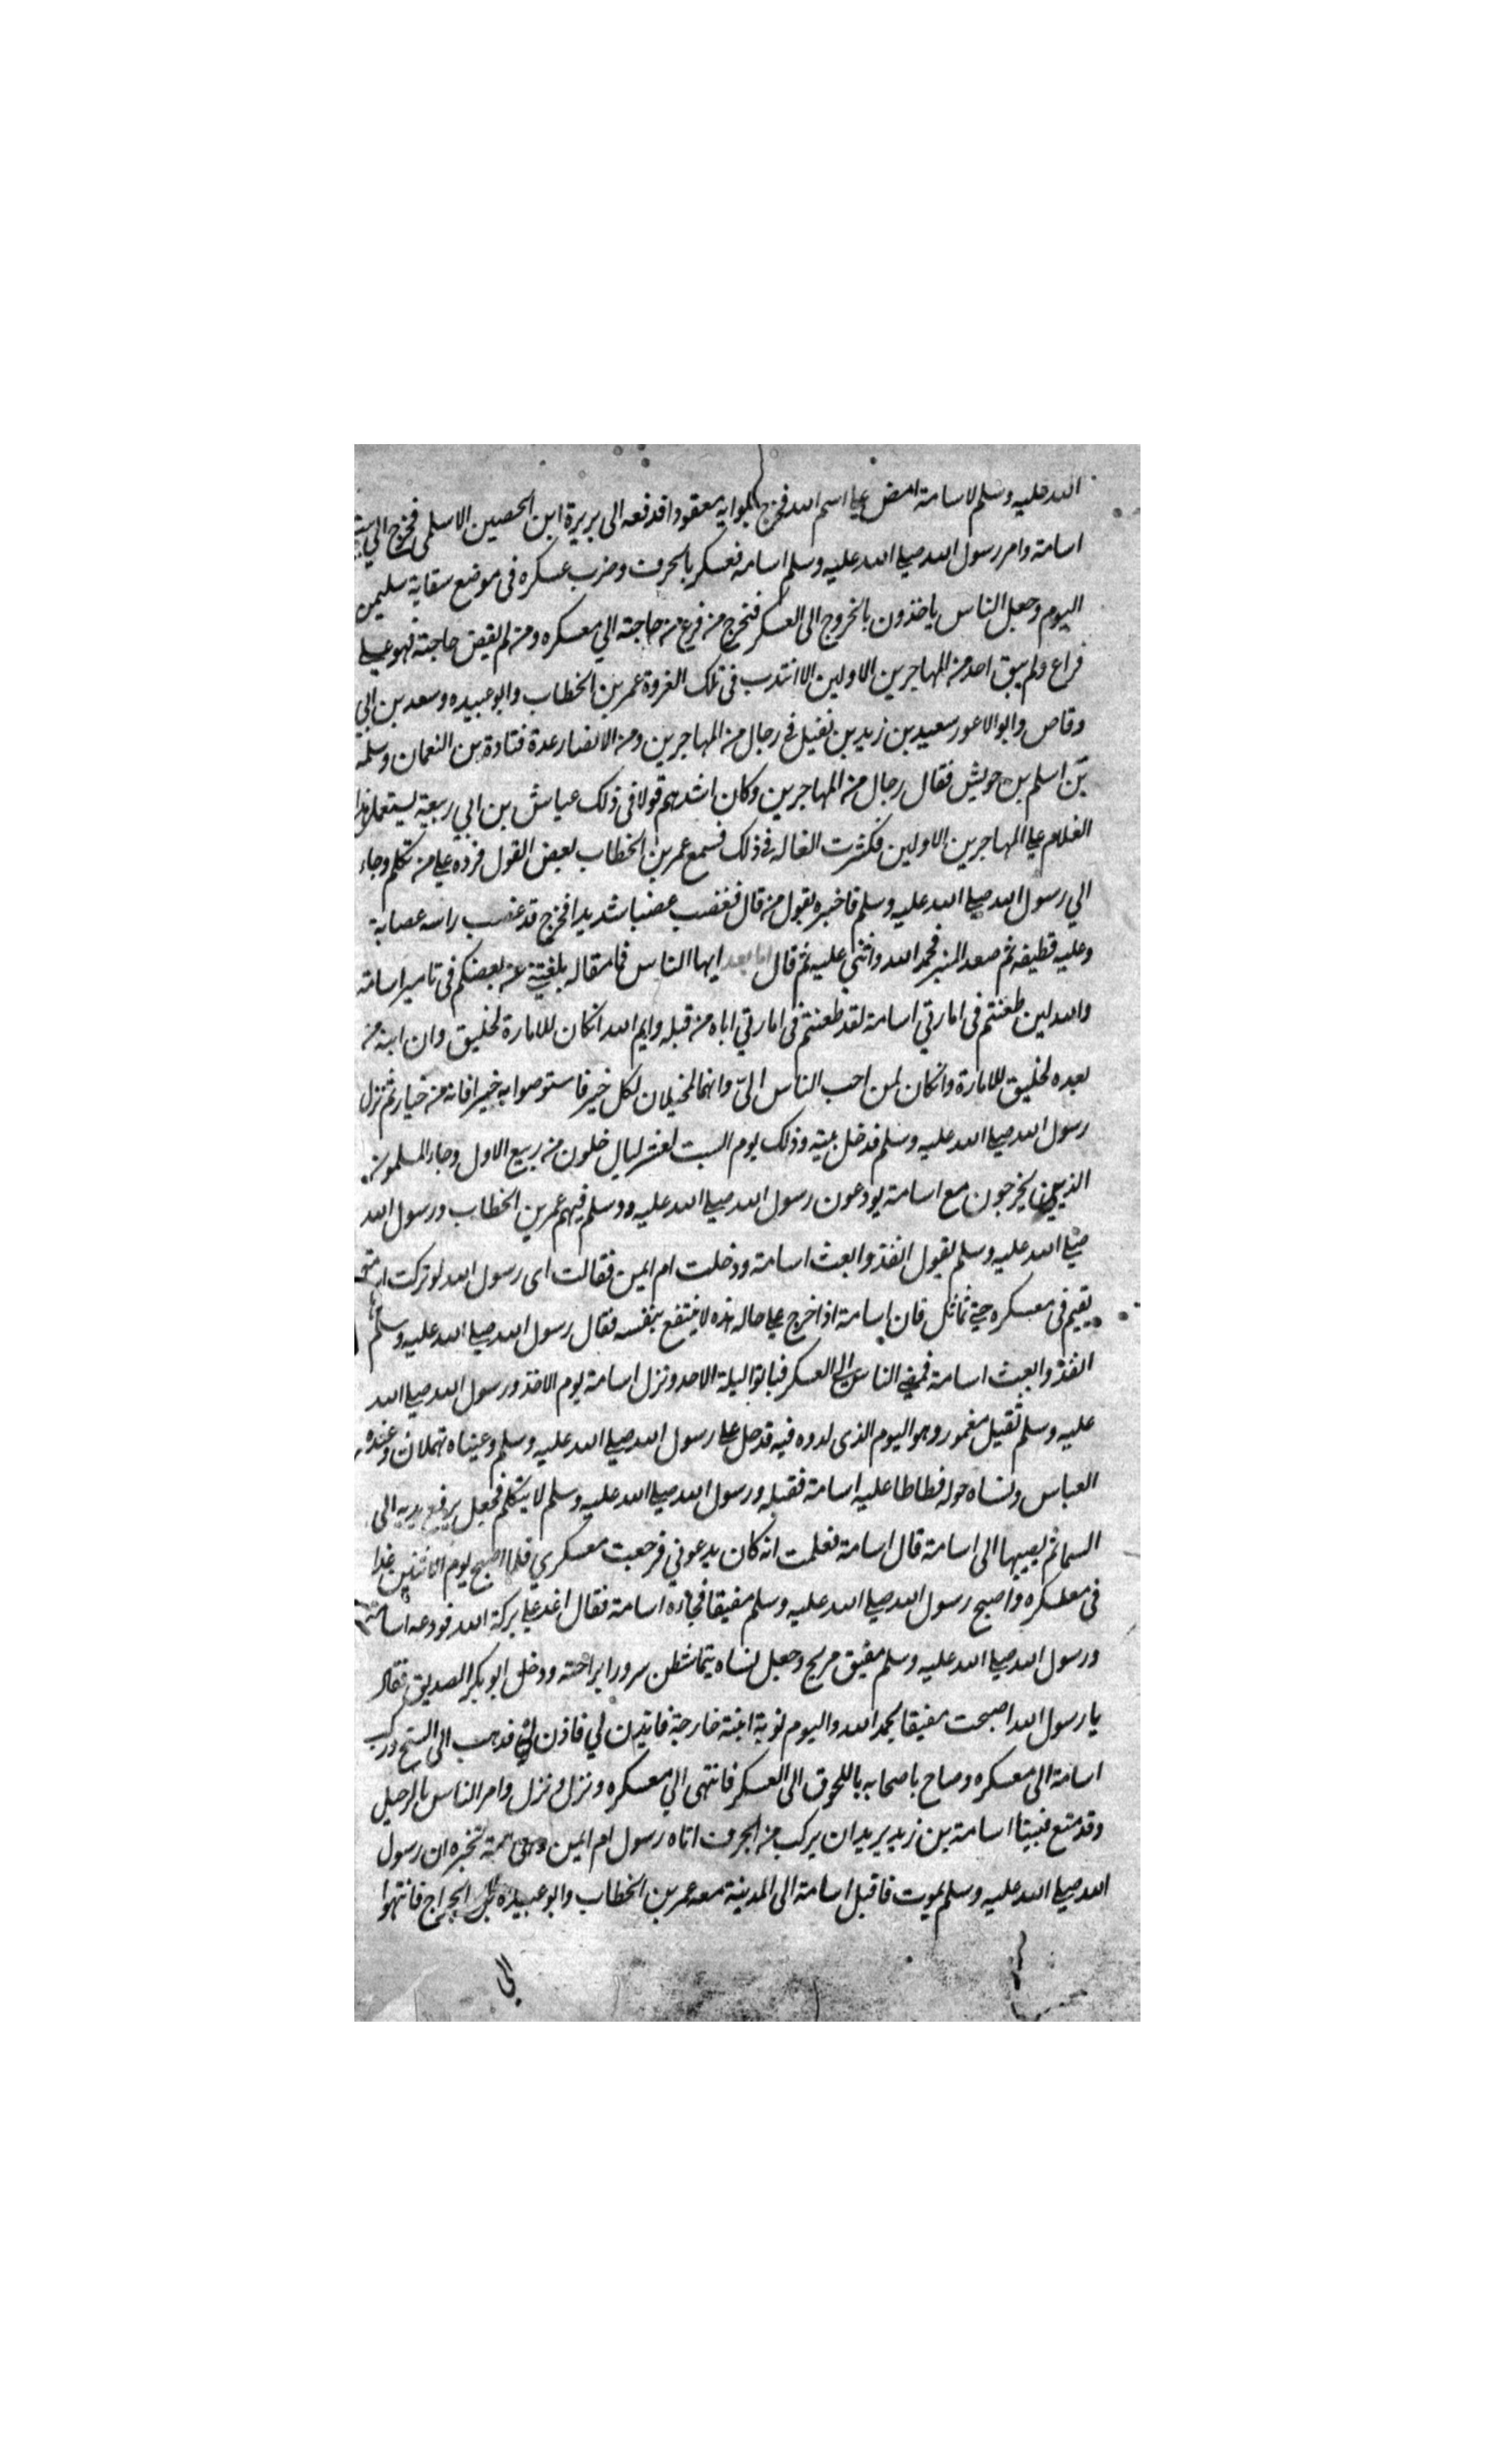 الله عليه وسلم لاسامة امض على اسم الله فخرج بلوايه معقودا فدفعه الى بريرة ابن الحصين الاسلمى فخرج الي بيت
اسامة وامر رسول الله صلى الله عليه وسلم اسامه فعسكر بالجرف وضرب عسكره فى موضع سقاية سليمن
اليوم وجعل الناس ياخذون بالخروج الى العسكر فتخرج من فرغ من حاجته الي معسكره ومن لم يقض حاجته فهو على
فراع ولم يبق احد من المهاجرين الاولين الا انتدب فى تلك الغزوة عمر بن الخطاب وابو عبيده وسعد بن ابي
وقاص وابو الاعور سعيد بن زيد بن نفيل فى رجال من المهاجرين ومن الانصار عدة قتادة بن النعمان وسلمه
بن اسلم بن حويش فقال رجال من المهاجرين وكان اشدهم قولا فى ذلك عياش بن ابي ربيعة يستعمل هذا
الغلام على المهاجرين الاولين فكثرت القاله فى ذلك فسمع عمر بن الخطاب بعض القول فرده على من تكلم وجاء
الي رسول الله صلى الله عليه وسلم فاخبره بقول من قال فغضب غضبا شديدا فخرج قد عصب راسه عصابة
وعليه قطيفه ثم صعد المنبر فحمد الله واثنى عليه ثم قال اما بعد ايها الناس فما مقاله بلغتني عن بعضكم فى تامير اسامة
والله لين طعنتم فى امارتي اسامة لقد طعنتم فى امارتي اباه من قبله وايم الله انكان للامارة لخليق وان ابنه من
بعده لخليق للامارة وانكان لمن احب الناس الىّ وانهما لمخيلان لكل خير فاستوصوا به خيرا فانه من خياركم ثم نزل
رسول الله صلى الله عليه وسلم فدخل بيته وذلك يوم السبت لعشر ليال خلون من ربيع الاول وجاء المسلمون
الذين يخرجون مع اسامة يودعون رسول الله صلى الله عليه ووسلم فيهم عمر بن الخطاب ورسول الله
صلى الله عليه وسلم يقول انفذوا بعث اسامة ودخلت ام ايمن فقالت اى رسول الله لو تركت اسامة
يقيم فى معسكره حتى تماثل فان اسامة اذا خرج على حاله هذه لا ينتفع بنفسه فقال رسول الله صلى الله عليه وسلم
انفذوا بعث اسامة فمضى الناس الى العسكر فباتوا ليلة الاحد ونزل اسامة يوم الاحد ورسول الله صلى الله
عليه وسلم ثقيل مغمور وهو اليوم الذى لدوه فيه فدخل على رسول الله صلى الله عليه وسلم وعيناه تهملان وعنده
العباس ونساه حوله فطاطا عليه اسامة فقبله ورسول الله صلى الله عليه وسلم لا يتكلم فجعل يرفع يديه الى
السما ثم يصيبها الى اسامة قال اسامة فعلمت انه كان يدعوني فرجعت معسكري فلما اصبح يوم الاثنين غدا
فى معسكره واصبح رسول الله صلى الله عليه وسلم مفيقا فجاءه اسامة فقال اغد على بركة الله فودعه اسامة
ورسول الله صلى الله عليه وسلم مفيق مريح وجعل نساه يتماشطن سرورا براحته ودخل ابو بكر الصديق فقال
يا رسول الله اصبحت مفيقا بحمد الله واليوم نوبة ابنة خارجة فايذن لي فاذن له فذهب الى السنح وركب
اسامة الى معسكره وصاح باصحابه باللحوق الى العسكر فانتهى الي معسكره ونزل ونزل وامر الناس بالرحيل
وقد متع فبينا اسامة بن زيد يريد ان يركب من الجرف اتاه رسول ام ايمن وهى امه تخبره ان رسول
الله صلى الله عليه وسلم يموت فاقبل اسامة الى المدينة معه عمر بن الخطاب وابو عبيدة بن الجراح فانتهوا
الى